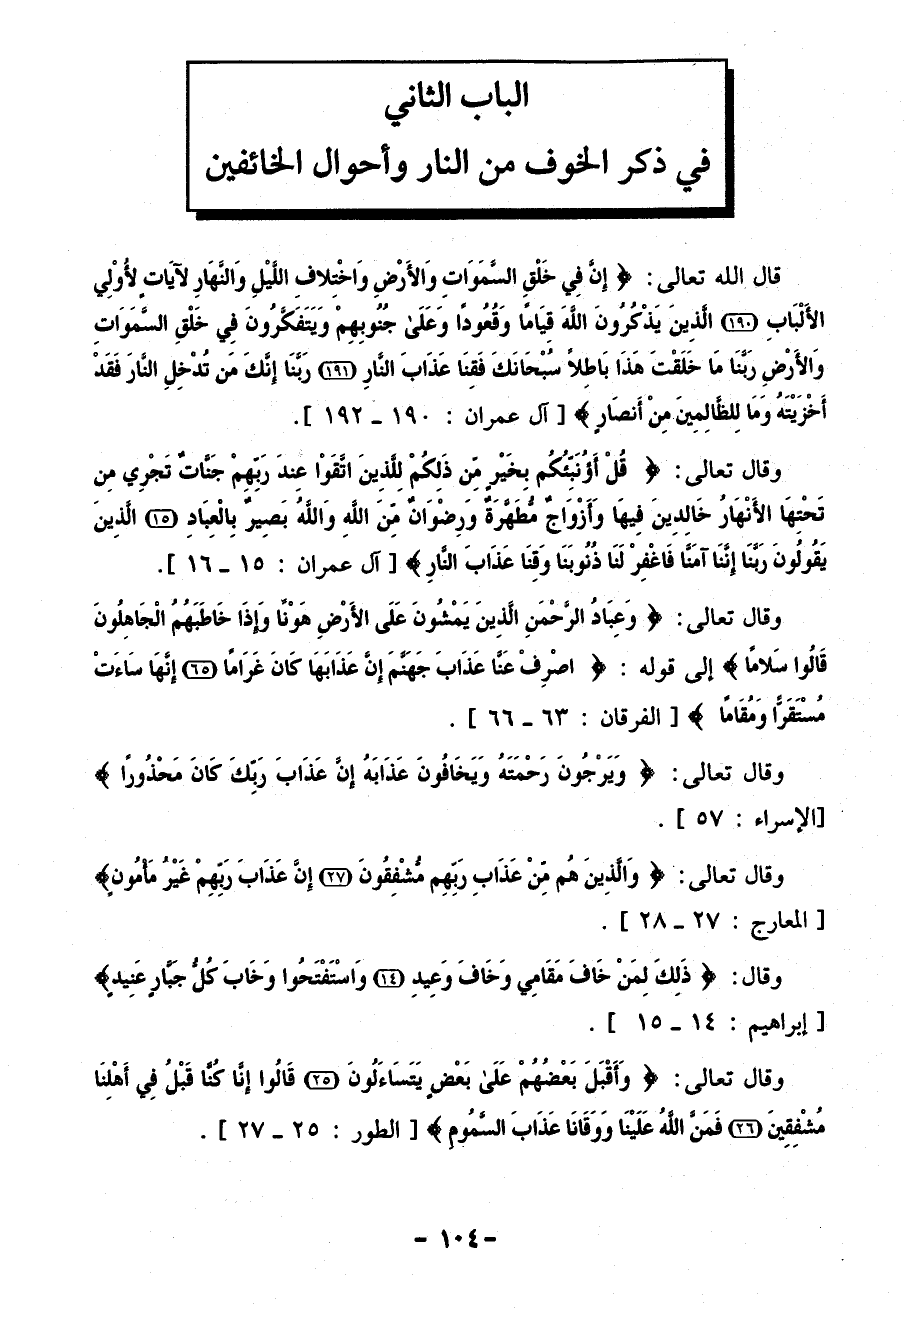 الباب الثاني
في ذكر الخوف من النار وأحوال الخائفين
قال الله تعالى: ﴿ إِنَّ فِي خَلْقِ السَّمَوَاتِ وَالأَرْضِ وَاخْتِلافِ اللَّيْلِ وَالنَّهَارِ لآيَاتٍ لأُوْلِي
الأَلْبَابِ (١٩٠) الَّذِينَ يَذْكُرُونَ اللَّهَ قِيَامًا وَقُعُودًا وَعَلَىٰ جُنُوبِهِمْ وَيَتَفَكَّرُونَ فِي خَلْقِ السَّمَوَاتِ
وَالأَرْضِ رَبَّنَا مَا خَلَقْتَ هَذَا بَاطِلاً سُبْحَانَكَ فَقِنَا عَذَابَ النَّارِ (١٩١) رَبَّنَا إِنَّكَ مَن تُدْخِلِ النَّارَ فَقَدْ
أَخْزَيْتَهُ وَمَا لِلظَّالِمِينَ مِنْ أَنصَارٍ ﴾ [ آل عمران : ١٩٠ ـ ١٩٢ ].
وقال تعالى: ﴿ قُلْ أَؤُنَبِّئُكُم بِخَيْرٍ مِّن ذَلِكُمْ لِلَّذِينَ اتَّقَوْا عِندَ رَبِّهِمْ جَنَّاتٌ تَجْرِي مِن
تَحْتِهَا الأَنْهَارُ خَالِدِينَ فِيهَا وَأَزْوَاجٌ مُّطَهَّرَةٌ وَرِضْوَانٌ مِّنَ اللَّهِ وَاللَّهُ بَصِيرٌ بِالْعِبَادِ (١٥) الَّذِينَ
يَقُولُونَ رَبَّنَا إِنَّنَا آمَنَّا فَاغْفِرْ لَنَا ذُنُوبَنَا وَقِنَا عَذَابَ النَّارِ ﴾ [ آل عمران : ١٥ ـ ١٦ ].
وقال تعالى: ﴿ وَعِبَادُ الرَّحْمَنِ الَّذِينَ يَمْشُونَ عَلَى الأَرْضِ هَوْنًا وَإِذَا خَاطَبَهُمُ الْجَاهِلُونَ
قَالُوا سَلامًا ﴾ إلى قوله : ﴿ اصْرِفْ عَنَّا عَذَابَ جَهَنَّمَ إِنَّ عَذَابَهَا كَانَ غَرَامًا (٦٥) إِنَّهَا سَاءَتْ
مُسْتَقَرًّا وَمُقَامًا ﴾ [ الفرقان : ٦٣ ـ ٦٦ ] .
وقال تعالى: ﴿ وَيَرْجُونَ رَحْمَتَهُ وَيَخَافُونَ عَذَابَهُ إِنَّ عَذَابَ رَبِّكَ كَانَ مَحْذُورًا ﴾
[الإسراء : ٥٧ ] .
وقال تعالى: ﴿ وَالَّذِينَ هُم مِّنْ عَذَابِ رَبِّهِم مُّشْفِقُونَ (٢٧) إِنَّ عَذَابَ رَبِّهِمْ غَيْرُ مَأْمُونٍ﴾
[ المعارج : ٢٧ ـ ٢٨ ] .
وقال: ﴿ ذَلِكَ لِمَنْ خَافَ مَقَامِي وَخَافَ وَعِيدِ (١٤) وَاسْتَفْتَحُوا وَخَابَ كُلُّ جَبَّارٍ عَنِيدٍ﴾
[ إبراهيم : ١٤ ـ ١٥ ] .
وقال تعالى: ﴿ وَأَقْبَلَ بَعْضُهُمْ عَلَىٰ بَعْضٍ يَتَسَاءَلُونَ (٢٥) قَالُوا إِنَّا كُنَّا قَبْلُ فِي أَهْلِنَا
مُشْفِقِينَ (٢٦) فَمَنَّ اللَّهُ عَلَيْنَا وَوَقَانَا عَذَابَ السَّمُومِ ﴾ [ الطور : ٢٥ ـ ٢٧ ] .
- ١٠٤ -